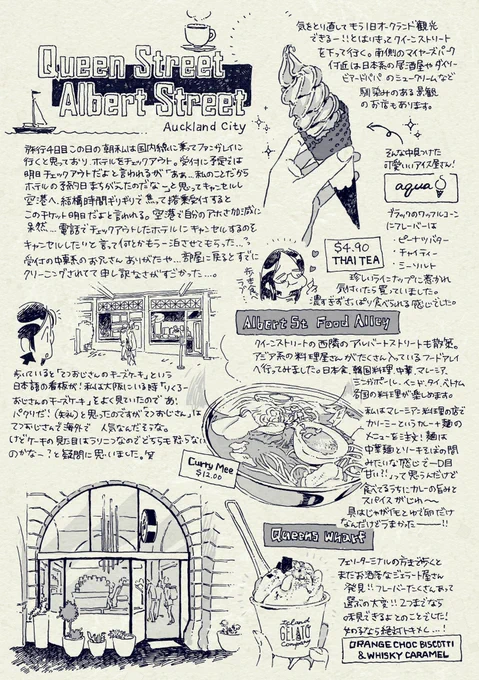 Queen Street
Albert Street
Auckland City
旅行4日目この日の朝私は国内線に乗ってファンガレイに
行くと思っており、ホテルをチェックアウト。受付に予定では
明日チェックアウトだよと言われるが「ああ…私のことだから
ホテルの予約日まちがえたのだな〜」と思ってキャンセルし
空港へ。結構時間ギリギリで焦って搭乗受付すると
このチケット明日だよと言われる。空港で自分のアホさ加減に
呆然…電話でチェックアウトしたホテルにキャンセルするのを
キャンセルしたいと言って何とかもう一泊させてもらった…。
受付の中華系のお兄さんありがたや…部屋に戻るとすでに
クリーニングされてて申し訳なさがすごかった…。
気をとり直してもう1日オークランド観光
できるー!!とはいえってクイーンストリート
を下って行く。南側のマイヤーズパーク
付近は日本系の居酒屋やダイソー
ビアードパパのシュークリームなど
馴染みのある景観
のお店もあります。
そんな中見つけた
可愛いいアイス屋さん!
aqua
ブラックのワッフルコーン
にフレーバーは
・ピーナツバター
・チャイティー
・シーソルト
珍しいラインナップに惹かれ
気付いたら買っていました。
濃すぎずさっぱり食べられる感じでした。
$4.90
THAI TEA
歩いていると「てつおじさんのチーズケーキ」という
日本語の看板が!私は大阪にいる時「りくろー
おじさんのチーズケーキ」をよく見ていたので「あ!
パクリだ!(失礼)と思ったのですが「てつおじさん」は
てつおじさんで海外で人気なんだそうな。
Albert St Food Alley
クイーンストリートの西隣のアルバートストリートも散策。
アジア系の料理屋さんがたくさん入っているフードアレイ
へ行ってみました。日本食、韓国料理、中華、マレーシア、
シンガポール、インド、タイ、ベトナム
各国の料理が楽しめます。
私はマレーシア料理の店で
カリーミーというカレー麺の
メニューを注文!麺は
中華麺とソーキそばの間
みたいな感じで一口目
甘い?!って思うんだけど
食べてるうちにカレーの旨みと
スパイスがじわ〜
なんだけどうまかったーーー!!
Curry Mee
$12.00
Queens Wharf
フェリーターミナルの方まで歩くと
またお洒落なジェラート屋さん
発見!!フレーバーたくさんあって
選ぶの大変!!2つまでなら
味見できるよとのことでした!
女の子なら絶対トキメく…!
Island
GELATO
Company
ORANGE CHOC BISCOTTI
& WHISKY CARAMEL